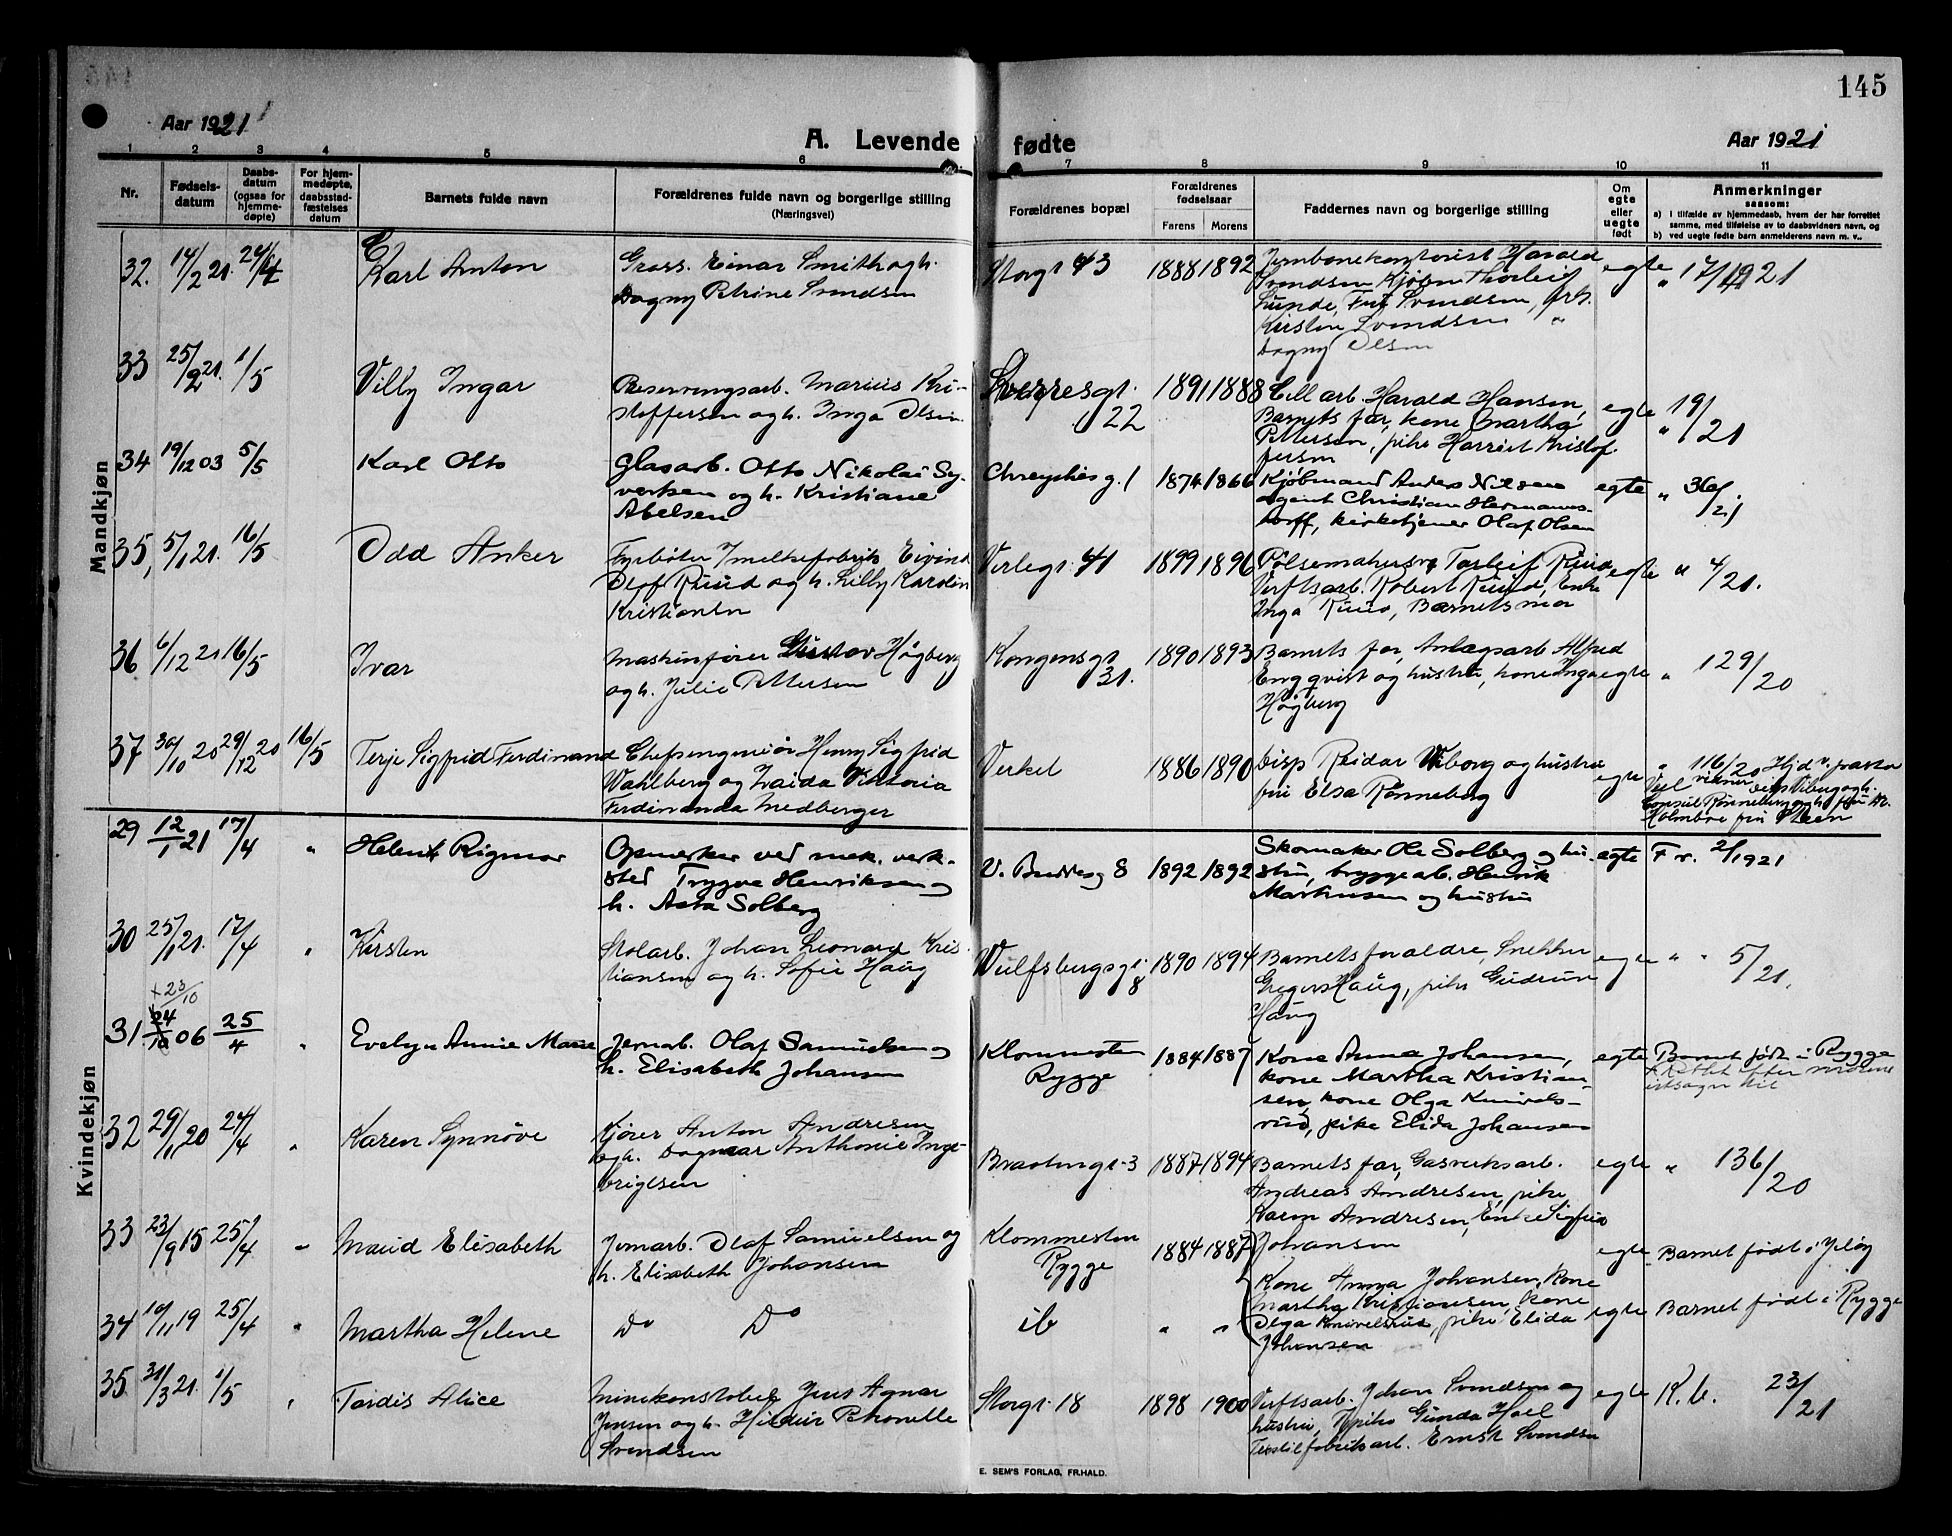 145
Aar 1921
A. Levende fødte
Aar 1921
1 2 3 4 5 6 7 8 9 10 11
Nr.
Fødsels-
datum
Daabs-
datum
(ogsaa for
hjemme-
døpte)
For hjem-
medøpte,
daabsstad-
fæstelses
datum
Barnets fulde navn
Forældrenes fulde navn og borgerlige stilling
(Næringsvei)
Forældrenes bopæl
Forældrenes
fødselsaar
Farens Morens
Faddernes navn og borgerlige stilling
Om
egte
eller
uegte
født
Anmerkninger
saasom:
a) I tilfælde av hjemmedaab, hvem der har forrettet
samme, med tilføielse av to daabsvidners navn, og
b) ved uegte fødte barn anmelderens navn m. v..
Mandkjøn
32. 14/2 21. 24/4
Karl Anton
Gross. Einar Smith og h.
Dagny Petrine Svendsen
Storgt 43
1888 1892
Jernbanekontorist Harald
Svendsen Kjøbm Thorleif
Sunde, Fru Svendsen, frk.
Kirsten Svendsen "
Dagny Olsen
egte
" 17/1921
33 25/2 21. 1/5
Villy Ingar
Reserveringsarb. Marius Kri-
stoffersen og h. Inga Olsen
22
1891 1888
Cell arb. Harald Hansen,
Barnets far, kone Martha
Pettersen, pike Harriet Kristof-
fersen
egte
" 19/21
34 19/12 03 5/5
Karl Otto
Glasarb. Otto Nikolai Sy-
vertsen og h. Kristiane
Abelsen
1874 1866
Kjøbmand Anders Nilsen
agent Christian Hermans-
torff, kirketjener Olaf Olsen
egte
" 36/21
35, 5/1 21. 16/5
Odd Anker
Fyrbøter Eivind
Olaf Ruud og h. Lilly Karolin
Kristiansen
Verlegt. 41
1899 1896
Pølsemaker Torleif Ruud
Verftsarb. Robert Ruud, Enke
Inga Ruud, Barnets mor
egte
" 4/21.
36 6/12 21 16/5
Ivar
Maskinfører Gustav Høgberg
og h. Julie Pettersen
Kongensgt
31.
1890 1893
Barnets far, Anlægsarb Alfred
Engqvist og hustru, kone Inga
Høgberg
egte
" 129/20
37 30/10 20 29/12 20 16/5
Terje Sigfrid Ferdinand
Chefsengeniør Henry Sigfrid
Wahlberg og Zaida Viktoria
Ferdinanda Medberger
Verket
1886 1890
Disp Reidar Viborg og hustru
fru Elsa Rønneberg
egte
" 116/20 Hjd v. pastor
konsul Rønneberg og h. fru
Holmboe fru Steen
Kvindekjøn
29 12/1 21 17/4 "
Helene Rigmor
Opmerker ved mek. verk-
sted Trygve Henriksen og
h. Asta Solberg
V. Buddesg 8
1892 1892
Skomaker Ole Solberg og hu-
stru, bryggearb. Henrik
Marthinsen og hustru
egte
Fr. 2/1921
30 25/1 21. 17/4 "
Kirsten
Stolarb. Johan Leonard Kris-
tiansen og h. Sofie Haug
Wulfsbergsgt.
8
1890 1894
Barnets foraldre, Snekker
Gregers Haug, pike Gudrun
Haug
egte
" " 5/21.
+23/10
31 24/10 06 25/4 "
Evelyn Annie Marie
Jernarb. Olaf Samuelsen og
h. Elisabeth Johansen
Klommesten
Rygge
1884 1887
Kone Anna Johansen,
kone Martha Kristian-
sen, kone Olga Knivels-
rud, pike Elida Johansen
egte
Barnet født i Rygge
+ Rettet efter moderens
utsagn hit
32 29/11 20 24/4 "
Karen Synnøve
Kjører Anton Andresen
og h. Dagmar Anthonie Inge-
brigtsen
Braatengt. 3
1887 1894
Barnets far, Gasverksarb.
Andreas Andresen, pike
Karen Andresen, Enke Sigfrid
Johansen
egte
" 136/20
33 23/9 15 25/4 "
Maud Elisabeth
Jernarb. Olaf Samuelsen og
h. Elisabeth Johansen
Klommesten
Rygge
1884 1887
Kone Anna Johansen, kone
Martha Kristiansen, kone
Olga Knivelsrud, pike Elida
Johansen
egte
Barnet født i Jeløy
34 10/11 19 25/4 "
Martha Helene
Do Do
ib
" "
egte
Barnet født i Rygge
35 31/3 21. 1/5 "
Tordis Alice
Minekonstabel Jens Agnar
Jensen og h. Hildur Petronelle
Svendsen
Storgt. 18
1898 1900
Verftsarb. Johan Svendsen og
hustru, pike Gunda Hoel
Tekstilfabrikarb. Ernst Svendsen
egte
K. b. 23/21
E. SEM'S FORLAG, FR.HALD.